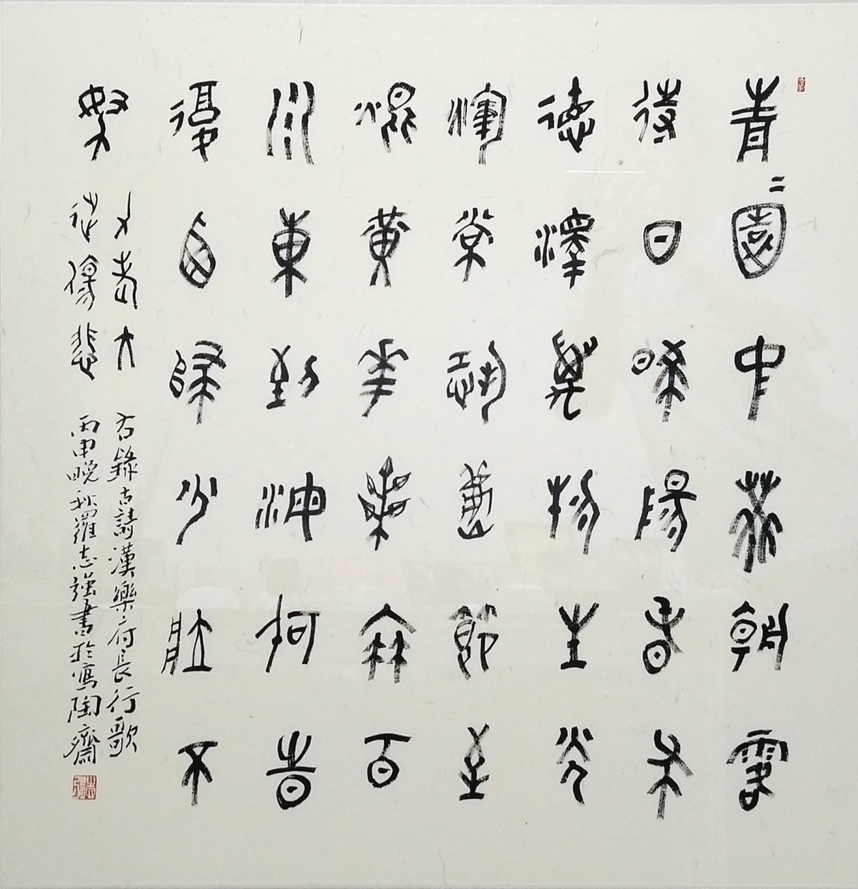 青〻園中葵朝露
待日晞陽春布
德澤萬物生光
輝常恐秋節至
焜黃華葉衰百
川東到海何時
復西歸少壯不
努
力老大 右錄古詩漢樂府長行歌
徒傷悲 丙申晚秋羅志強書於寫陶齋